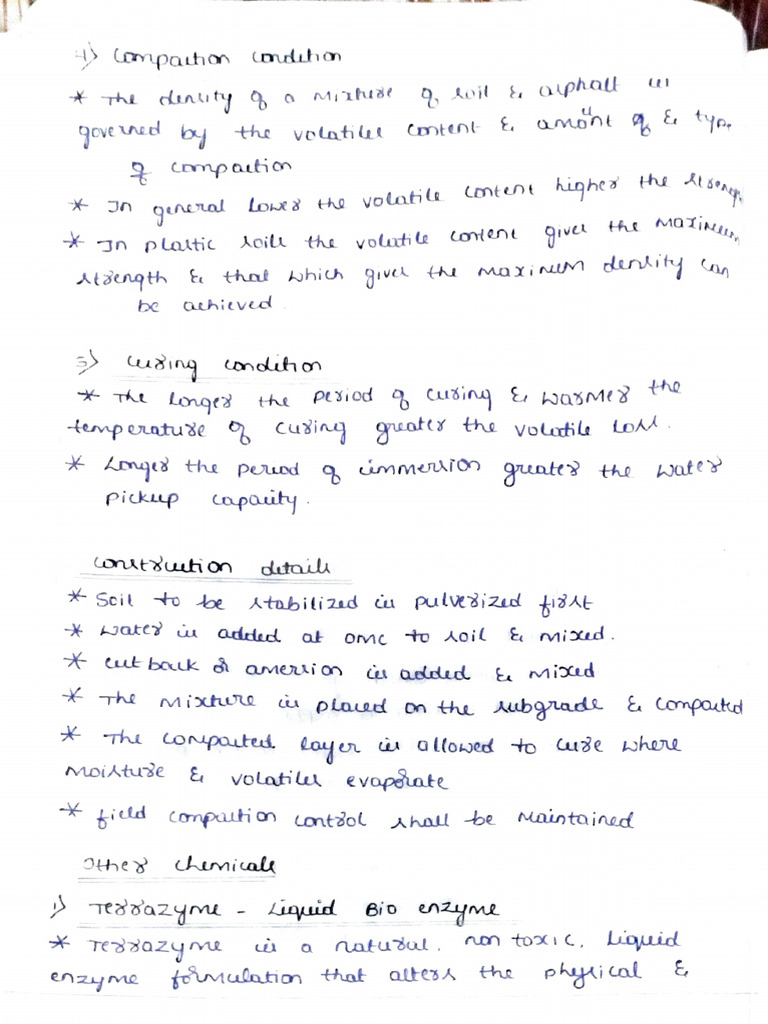 4) Compaction condition
* The density of a mixture of soil & asphalt is
governed by the volatiles content & amount of & type
of compaction
* In general lower the volatile content higher the strength
* In plastic soils the volatile content gives the maximum
strength & that which gives the maximum density can
be achieved
5) curing condition
* The longer the period of curing & warmer the
temperature of curing greater the volatile loss.
* Longer the period of immersion greater the water
pickup capacity.
Construction details
* Soil to be stabilized is pulverized first
* Water is added at OMC to soil & mixed.
* cut back or amersion is added & mixed
* The mixture is placed on the subgrade & compacted
* The compacted layer is allowed to cure where
moisture & volatiles evaporate
* field compaction control shall be maintained
Other chemicals
1) Terrazyme - Liquid Bio enzyme
* Terrazyme is a natural, non toxic, liquid
enzyme formulation that alters the physical &